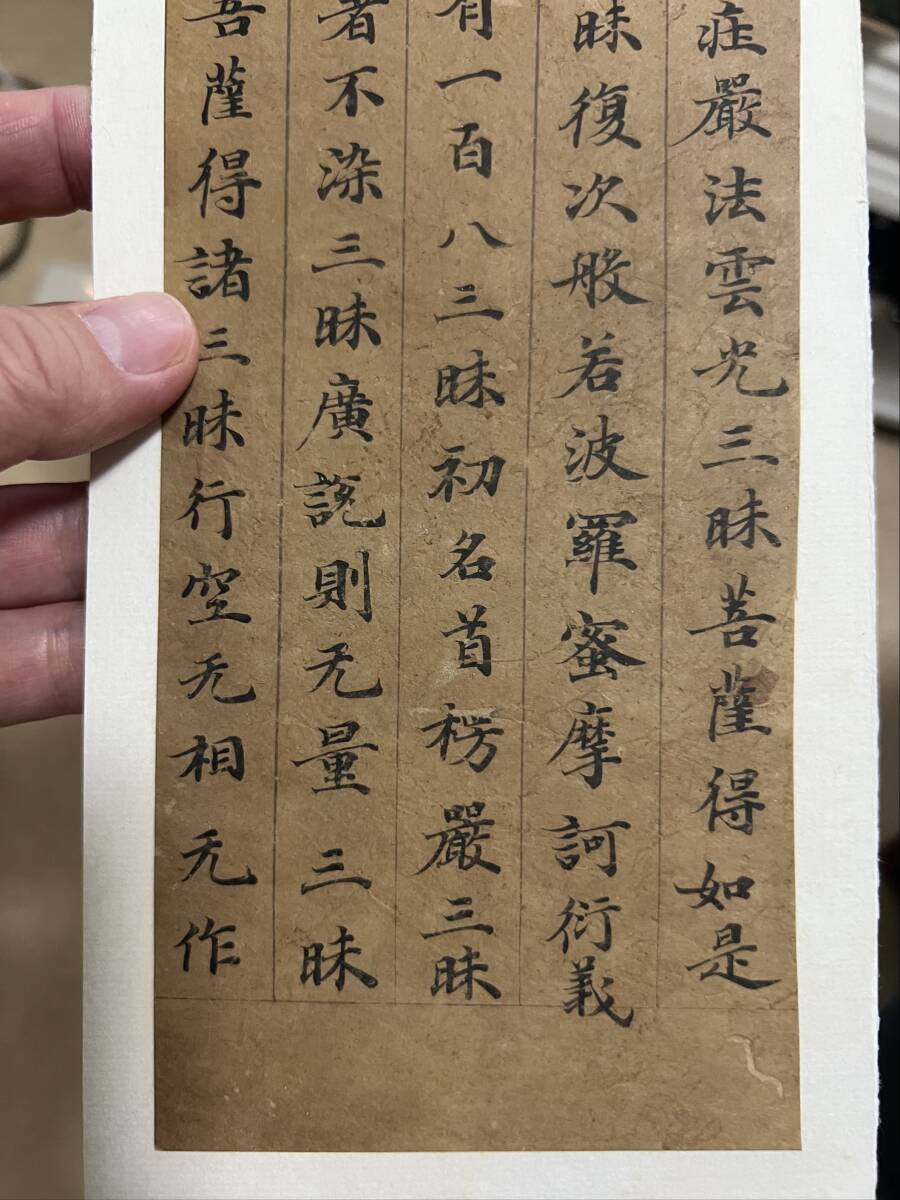 庄嚴法雲光三昧菩薩得如是
昧復次般若波羅蜜摩訶衍義
有一百八三昧初名首楞嚴三昧
者不染三昧廣說則无量三昧
菩薩得諸三昧行空无相无作